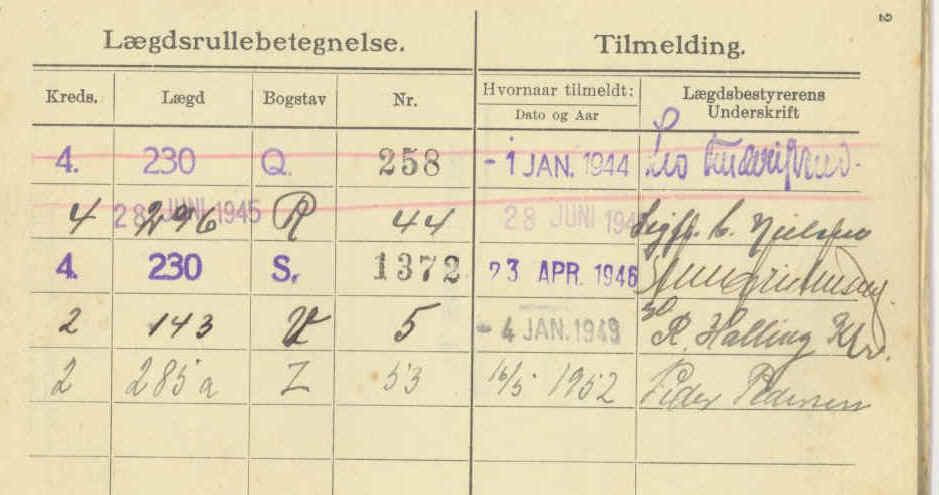 2
Lægdsrullebetegnelse. Tilmelding.
Kreds. Lægd Bogstav Nr. Hvornaar tilmeldt: Dato og Aar Lægdsbestyrerens Underskrift
4. 230 Q. 258 - 1 JAN. 1944
4 296 28 JUNI 1945 R 44 28 JUNI 194 Sigfr. C. Nielsen
4. 230 S. 1372 23 APR. 1946
2 143 5 - 4 JAN. 1949 R. Halling
2 285a Z 53 16/5 1952 Peder Pedersen